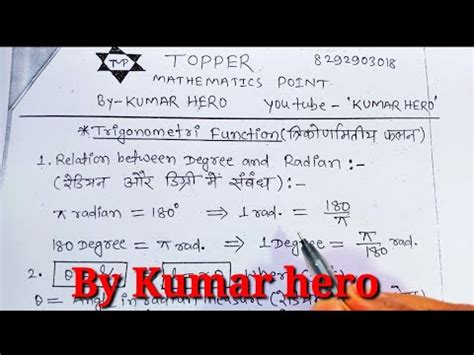 TMP
TOPPER 8292903018
MATHEMATICS POINT
By-KUMAR HERO YouTube-'KUMAR HERO'
*Trigonometri Function (त्रिकोणमितीय फलन)
1. Relation between Degree and Radian :-
(रेडियन और डिग्री में संबंध) :-
π radian = 180° ⇒ 1 rad. = 180/π
180 Degree = π rad. ⇒ 1 Degree = π/180 rad.
2.
By Kumar hero
θ = Angle in radian measure